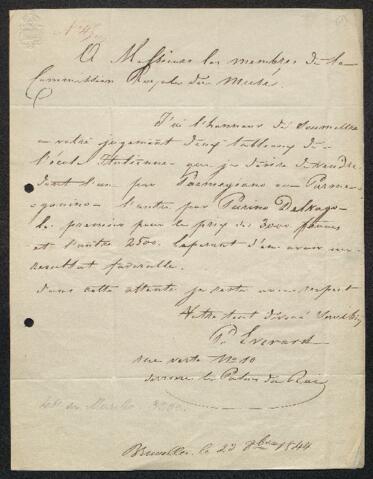 A Messieurs les membres de la
Commission Royale du Musée.
J'ai l'honneur de soumettre
a votre jugement deux tableaux de
l'école Italienne que je désire de vendre
dont l'un par Parmegiano ou Parme-
gianino l'autre par Perino Delvago
le premier pour le prix de 3000 francs
et l'autre 2500. esperant d'en avoir un
resultat favorable.
dans cette attente je reste avec respect
Votre tout devoué
P. Everard
rue verte No 10
derriere le Palais du Roi
Bruxelles, le 23 1844